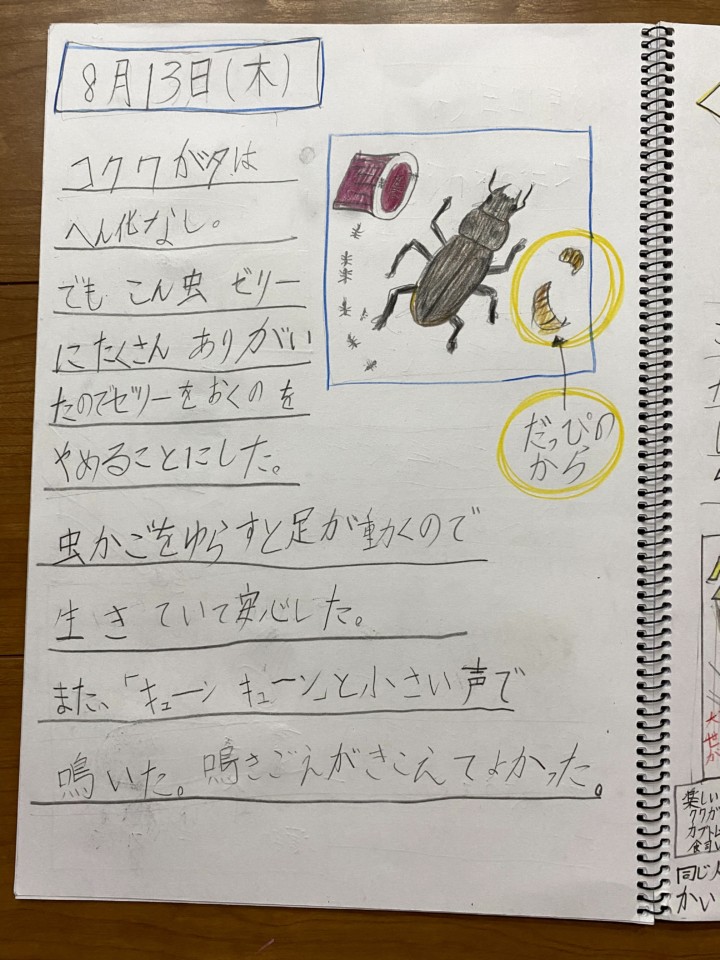 8月13日(木)
コクワガタは
へん化なし。
でも こん虫 ゼリー
にたくさん ありがい
たのでゼリーを おくのを
やめることにした。
だっぴの
から
虫かごをゆらすと足が動くので
生きていて安心した。
また、「キューン キューン」と小さい声で
鳴いた。鳴きごえがきこえてよかった。
楽しい
クワガ
カブトム
同じ人
かい